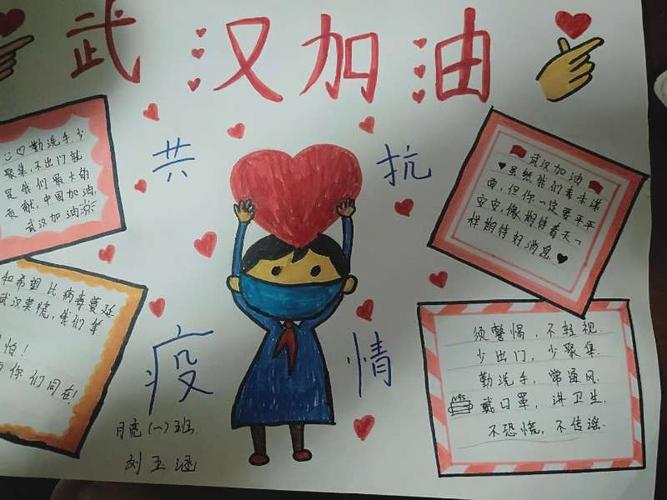 武汉加油
共抗
疫情
勤洗手,少
聚集,不出门就
是我们最大的
贡献,中国加油,
武汉加油
和希望比病毒蔓延
武汉莫慌,我们等
怕!
你们同在!
武汉加油
虽然我们素未谋
面,但你一定要平平
安安,像期待春天一
样期待好消息
须警惕,不轻视.
少出门,少聚集.
勤洗手,常通风.
戴口罩,讲卫生.
不恐慌,不传谣.
月亮(一)班.
刘玉涵